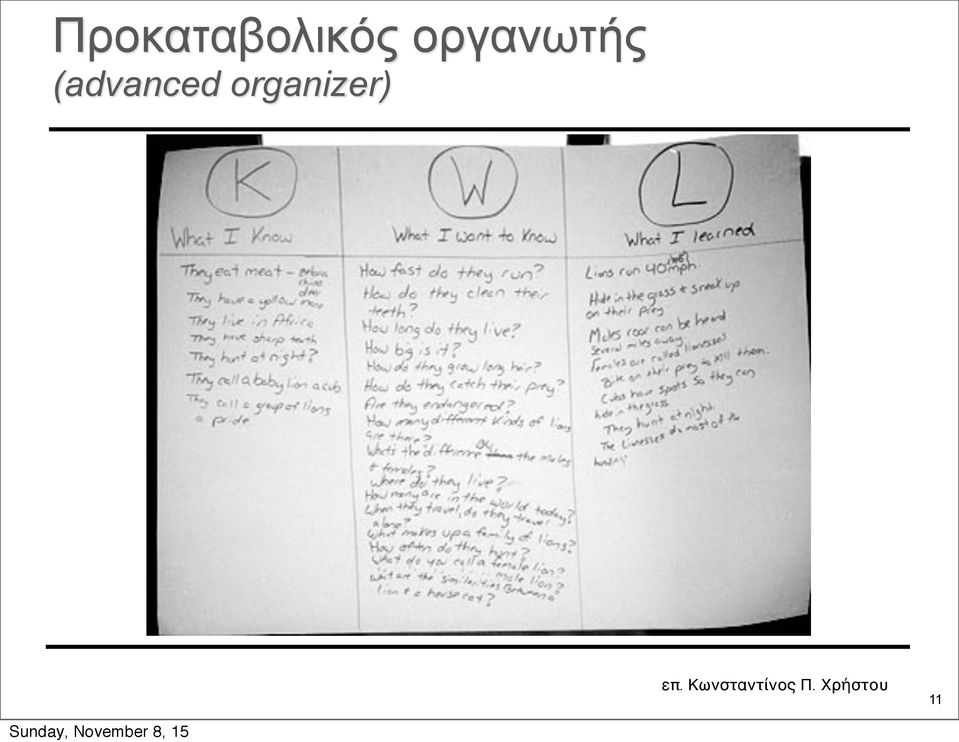 Προκαταβολικός οργανωτής
(advanced organizer)
K
What I Know
They eat meat - zebra
rhino
deer
They have a yellow mane
They live in Africa
They have sharp teeth
They hunt at night?
They call a baby lion a cub
They call a group of lions
a pride
W
What I want to Know
How fast do they run?
How do they clean their
teeth?
How long do they live?
How big is it?
How do they grow long hair?
How do they catch their prey?
Are they endangered?
How many different kinds of lions
are there?
What's the difference the males
+ females?
Where do they live?
How many are in the world today?
When they travel, do they travel
alone?
What makes up a family of lions?
How often do they hunt?
What do you call a female lion?
male lion?
What are the similarities Between a
lion & a house cat?
L
What I learned
Lions run 40mph.
Hide in the grass & sneak up
on their prey
Males roar can be heard
Several miles away
Females are called lionesses
Bite on their prey to kill them.
Cubs have spots so they can
hide in the grass
They hunt at night
The Lionesses do most of the
hunting
επ. Κωνσταντίνος Π. Χρήστου
11
Sunday, November 8, 15